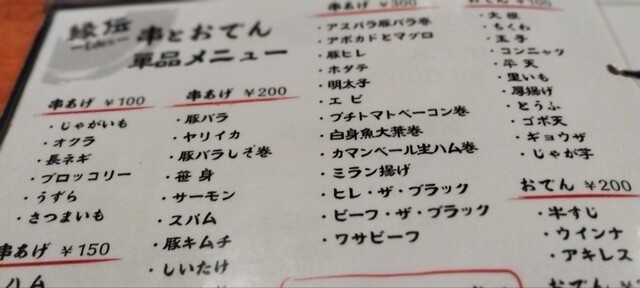 縁伝
串とおでん
単品メニュー
串あげ ¥100
・じゃがいも
・オクラ
・長ネギ
・ブロッコリー
・うずら
・さつまいも
串あげ ¥150
ハム
串あげ ¥200
・豚バラ
・ヤリイカ
・豚バラしそ巻
・笹身
・サーモン
・スパム
・豚キムチ
・しいたけ
串あげ ¥300
・アスパラ豚バラ巻
・アボカドとマグロ
・豚ヒレ
・ホタテ
・明太子
・エビ
・プチトマトベーコン巻
・白身魚大葉巻
・カマンベール生ハム巻
・ミラン揚げ
・ヒレ・ザ・ブラック
・ビーフ・ザ・ブラック
・ワサビーフ
おでん ¥100
・大根
・ちくわ
・玉子
・コンニャク
・平天
・里いも
・厚揚げ
・とうふ
・ゴボ天
・ギョウザ
・じゃが芋
おでん ¥200
・牛すじ
・ウインナ
・アキレス
おでん